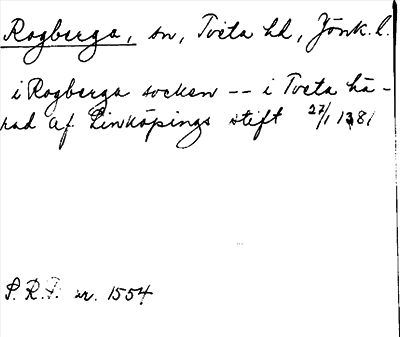 Rogberga, sn, Tveta hd, Jönk. l.
i Rogberga socken -- i Tveta hä-
rad af Linköpings stift 27/1 1381
S. R. P. nr. 1554